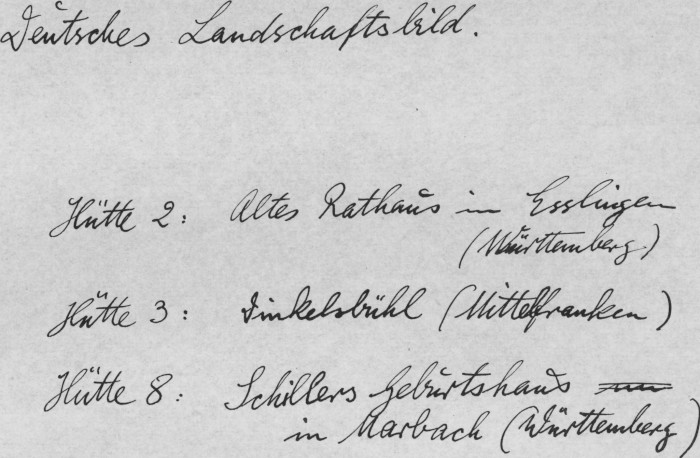 Deutsches Landschaftsbild.
Hütte 2: Altes Rathaus in Esslingen
(Württemberg)
Hütte 3: Dinkelsbühl (Mittelfranken)
Hütte 8: Schillers Geburtshaus
in Marbach (Württemberg)